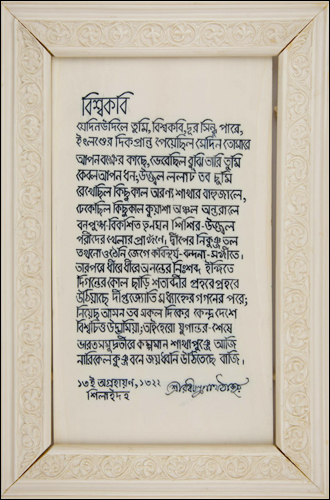 বিশ্বকবি
যেদিন উদিলে তুমি, বিশ্বকবি, দূর সিন্ধু পারে,
ইংলণ্ডের দিকপ্রান্ত পেয়েছিল সেদিন তোমারে
আপন বক্ষের কাছে, ভেবেছিল বুঝি তারি তুমি
কেবল আপন ধন; উজ্জ্বল ললাট তব চুমি
রেখেছিল কিছুকাল অরণ্য শাখার বাহুজালে,
ঢেকেছিল কিছুকাল কুয়াশা অঞ্চল অন্তরালে
বনপুষ্প-বিকশিত তৃনঘন শিশির-উজ্জ্বল
পরীদের খেলার প্রাঙ্গণে; দ্বীপের নিকুঞ্জ তল
তখনো ওঠেনি জেগে কবিসূর্য-বন্দনা-সঙ্গীতে।
তারপরে ধীরে ধীরে অনন্তের নিঃশব্দ ইঙ্গিতে
দিগন্তের কোল ছাড়ি শতাব্দীর প্রহরে প্রহরে
উঠিয়াছ দীপ্তজ্যোতি মধ্যাহ্নের গগনের পরে;
নিয়েছ আসন তব সকল দিকের কেন্দ্রদেশে
বিশ্বচিত্ত উদ্ভাসিয়া; তাই হেরো যুগান্তর-শেষে
ভারতসমুদ্রতীরে কম্পমান শাখাপুঞ্জে আজি
নারিকেল কুঞ্জবনে জয়ধ্বনি উঠিতেছে বাজি।
১৩ই অগ্রহায়ন, ১৩২২
শিলাইদহ
শ্রীরবীন্দ্রনাথ ঠাকুর